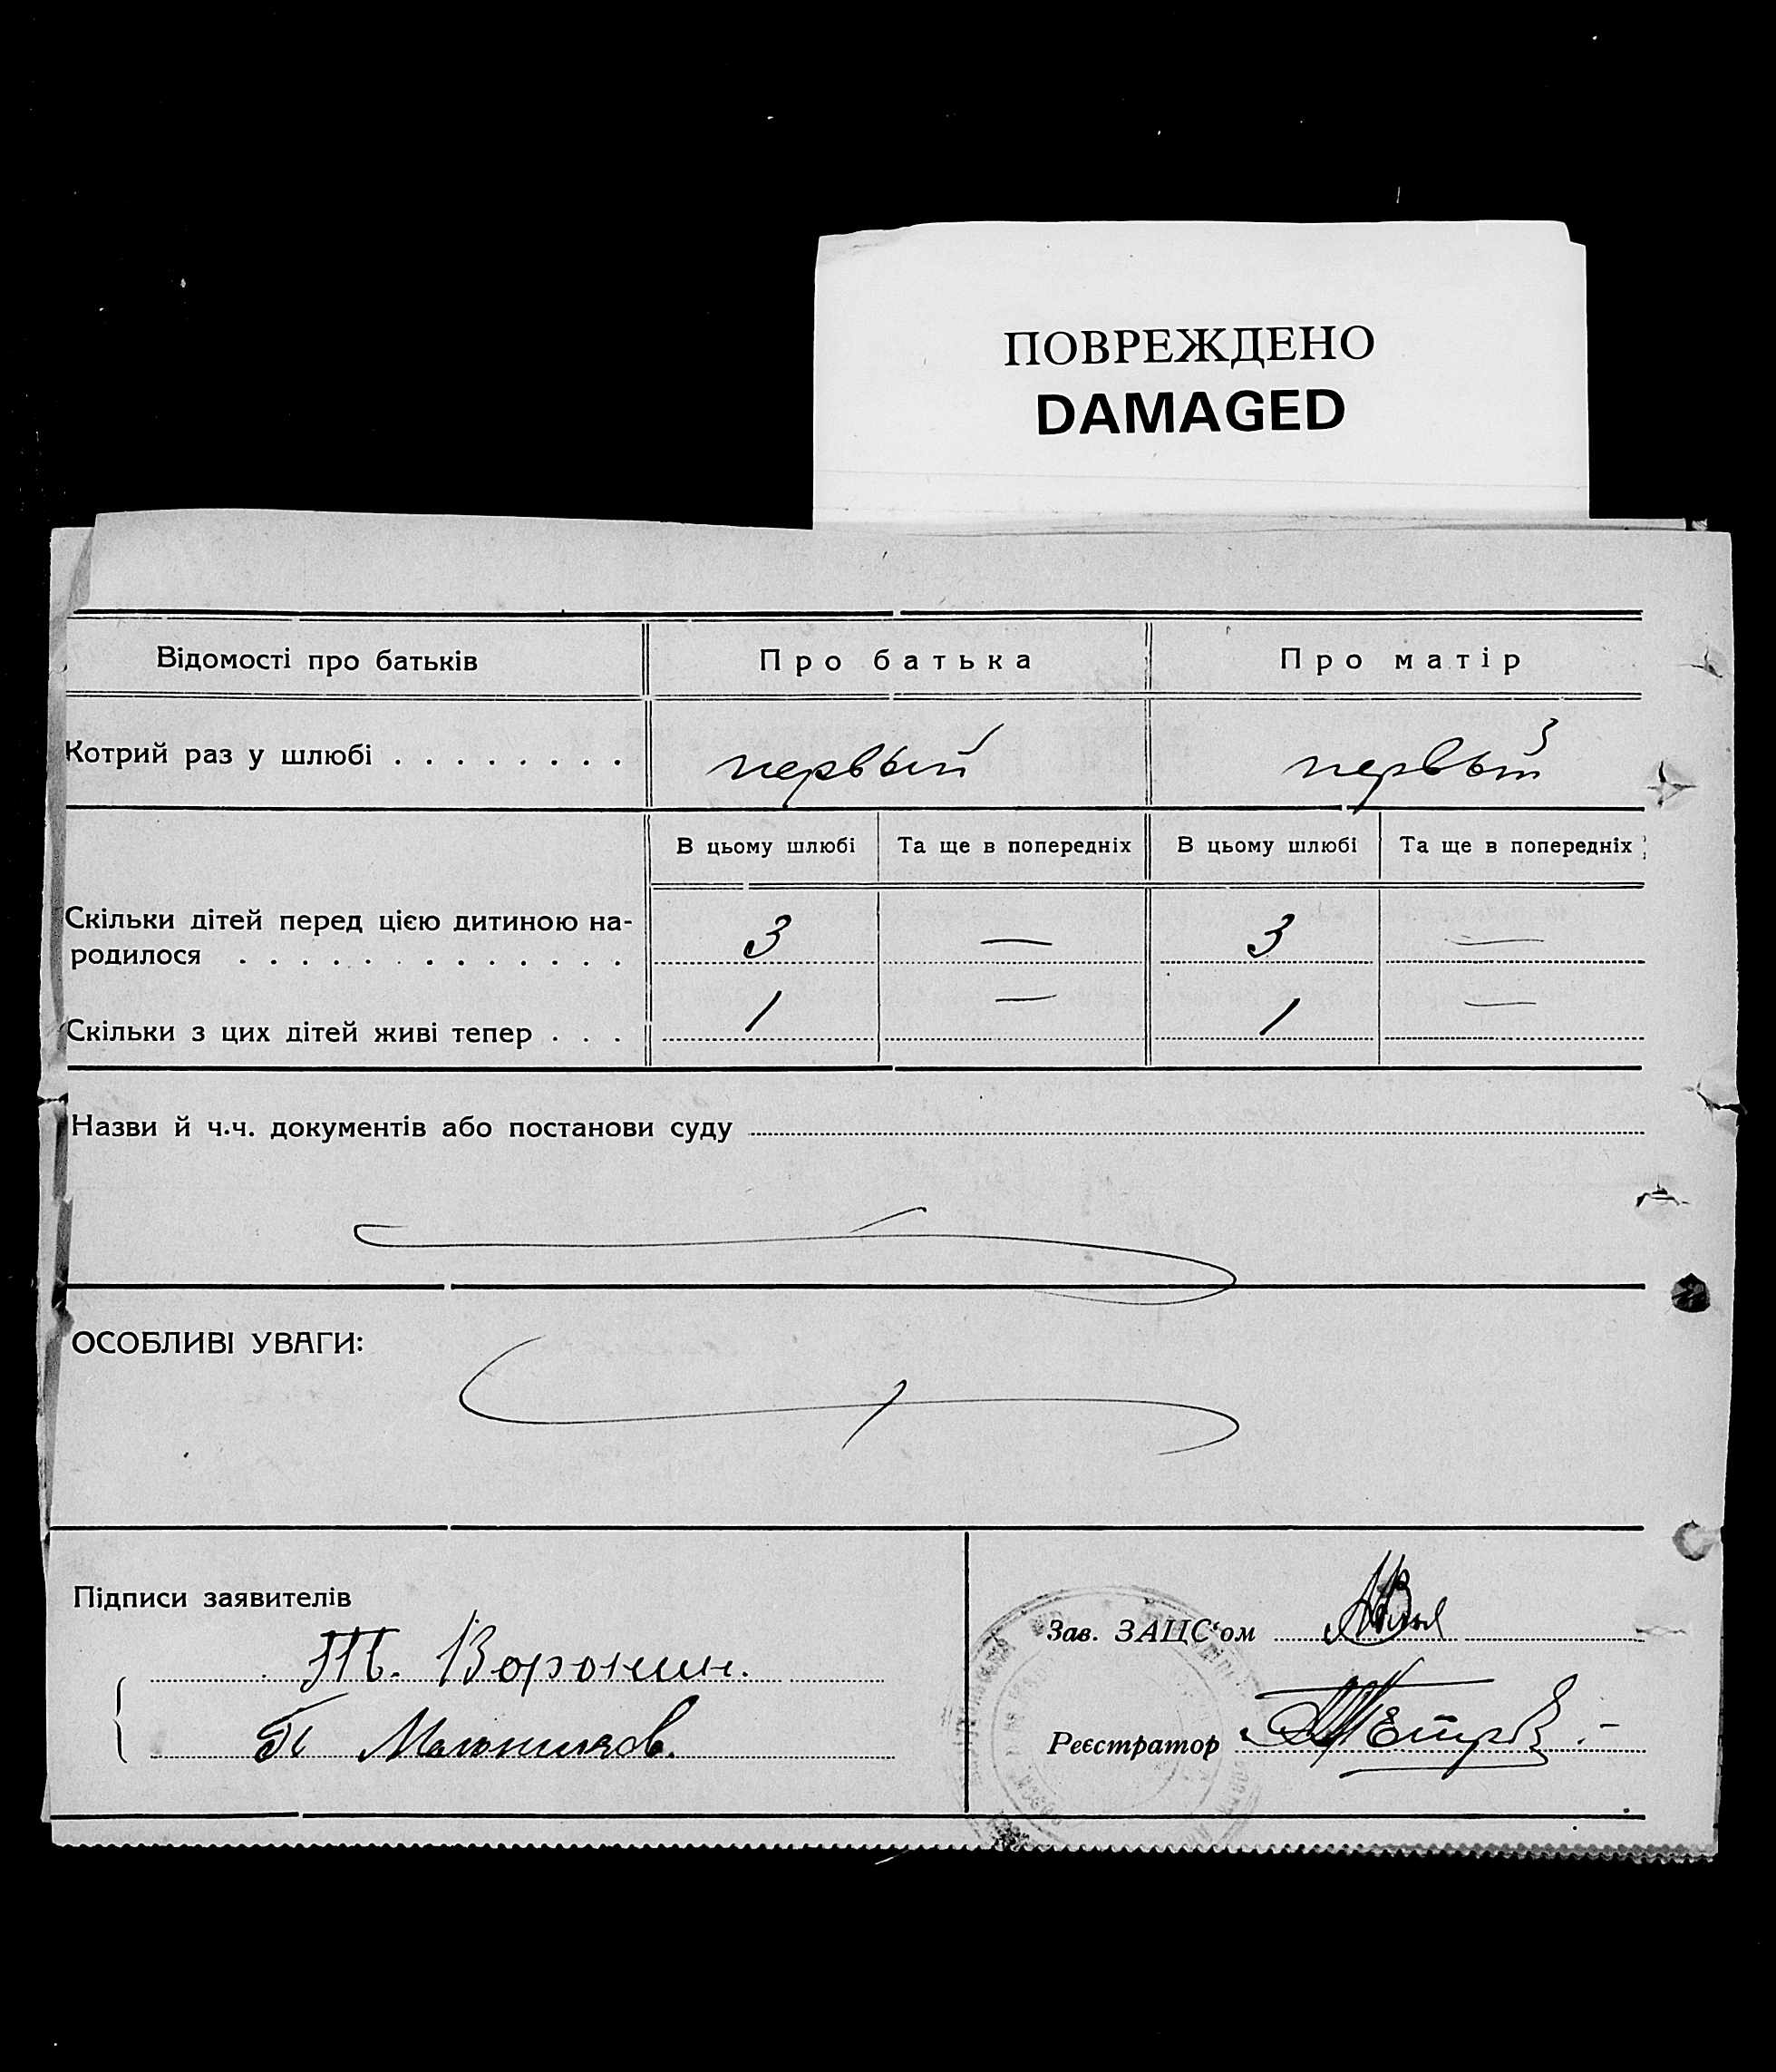 ПОВРЕЖДЕНО
DAMAGED
Відомості про батьків Про батька Про матір
Котрий раз у шлюбі . . . . . . . . первый первый
В цьому шлюбі Та ще в попередніх В цьому шлюбі Та ще в попередніх
Скільки дітей перед цією дитиною на-
родилося . . . . . . . . . . . . . 3 — 3 —
Скільки з цих дітей живі тепер . . . 1 — 1 —
Назви й ч.ч. документів або постанови суду
ОСОБЛИВІ УВАГИ:
Підписи заявителів
Зав. ЗАЦС‘ом
Т. Воронин.
Реєстратор